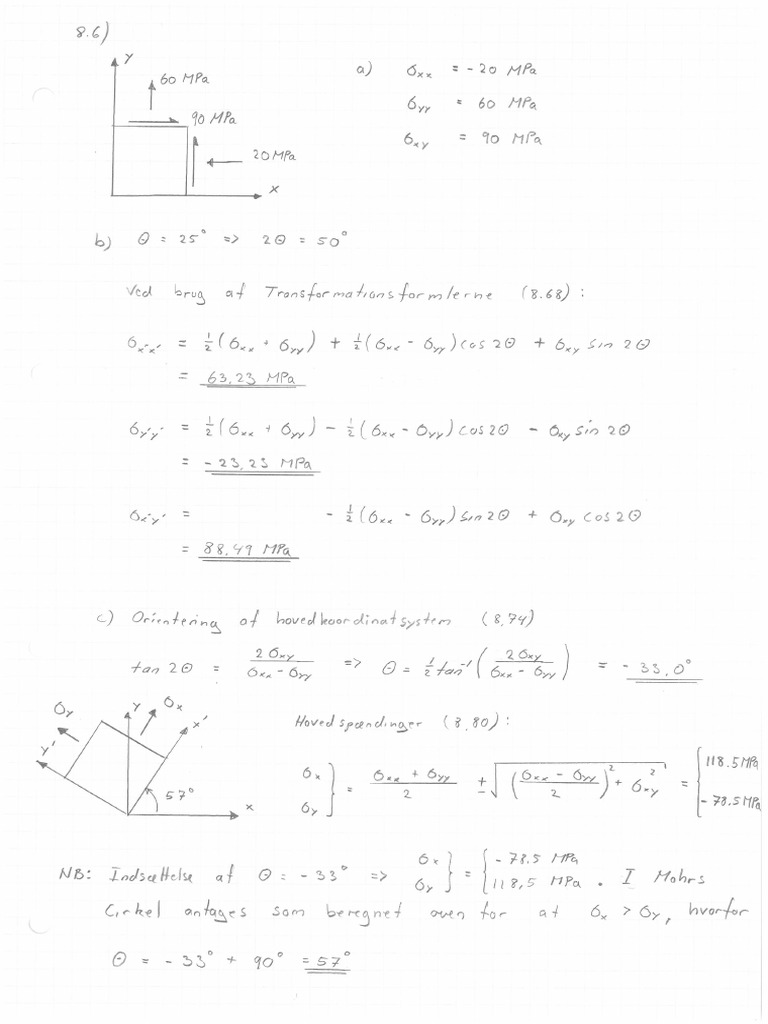 8.6)
y
60 MPa
90 MPa
20 MPa
x
a) σxx = -20 MPa
σyy = 60 MPa
σxy = 90 MPa
b) θ = 25° => 2θ = 50°
Ved brug af Transformationsformlerne (8.68) :
σx'x' = ½(σxx + σyy) + ½(σxx - σyy)cos 2θ + σxy sin 2θ
= 63,23 MPa
σy'y' = ½(σxx + σyy) - ½(σxx - σyy)cos2θ - σxy sin 2θ
= -23,23 MPa
σx'y' = - ½(σxx - σyy)sin2θ + σxy cos2θ
= 88.49 MPa
c) Orientering af hovedkoordinatsystem (8,74)
tan 2θ = 2σxy / (σxx - σyy) => θ = ½ tan⁻¹ (2σxy / (σxx - σyy)) = -33,0°
σy
y
σx
x'
y'
57°
x
Hovedspændinger (8,80) :
σx
σy } = (σxx + σyy) / 2 ± √(((σxx - σyy) / 2)² + σxy²) = { 118.5 MPa
-78.5 MPa
NB: Indsættelse af θ = -33° => σx
σy } = { -78.5 MPa
118,5 MPa . I Mohrs
Cirkel antages som beregnet oven for at σx > σy, hvorfor
θ = -33° + 90° = 57°